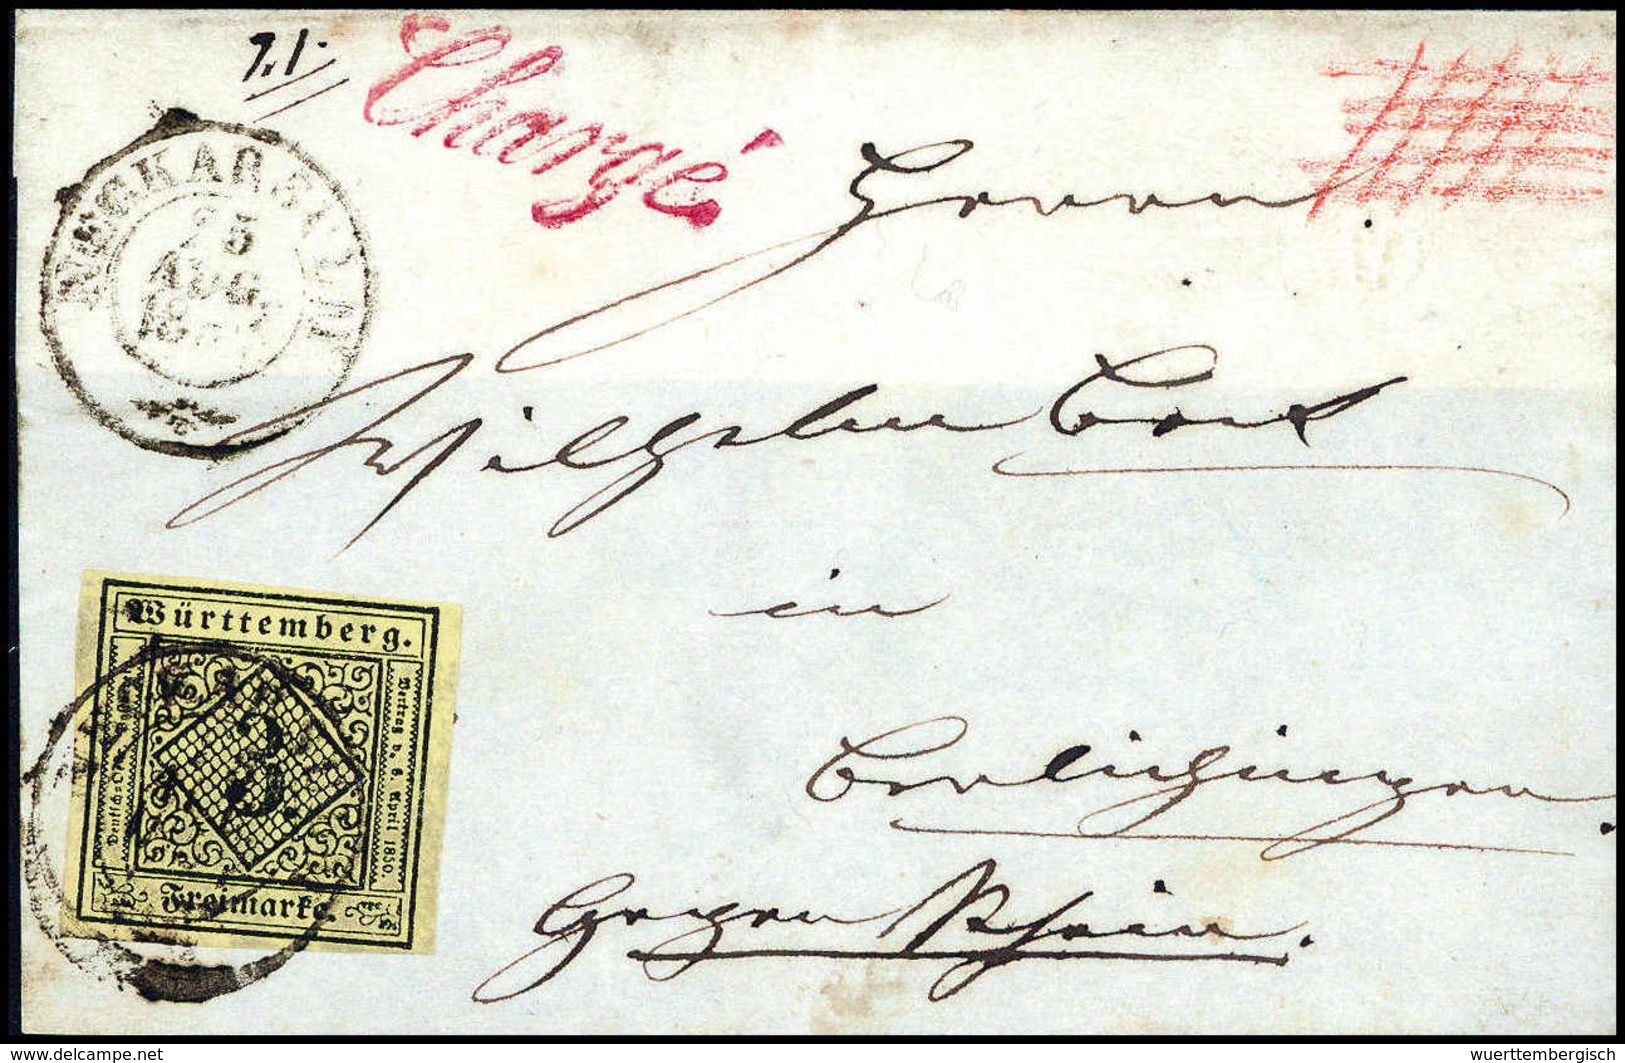 7.1.
Chargé
NECKARSULM
25
AUG.
18
Herrn
Wilhelm
in
Berlichingen
Gegen Schein.
Württemberg.
Deutsch-Oestr. Postverein
3.
Vertrag v. 6. April 1850.
Freimarke.
www.delcampe.net
wuerttembergisch